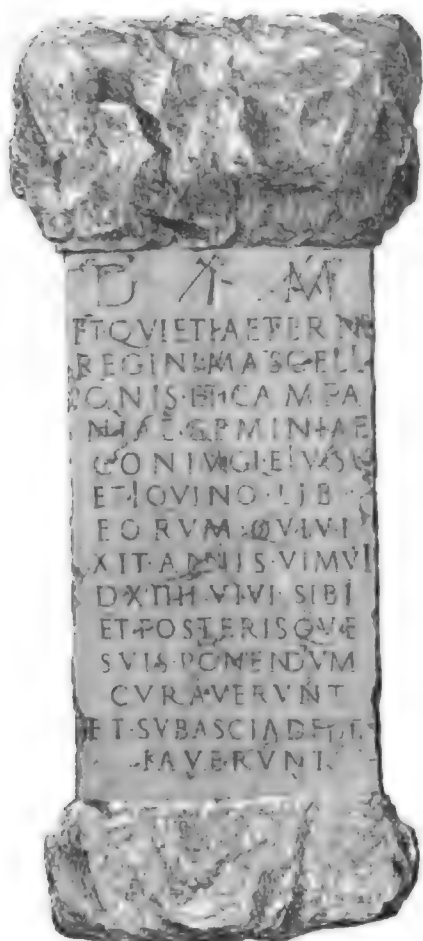 D M
ET QVIETI AETERNAE
REGINI MASCELLI
ONIS ET CAMPA
NIAE GEMINIAE
CONIVGI EIVS
ET IOVINO LIB
EORVM QVI VI
XIT ANNIS VI M VI
D XIIII VIVI SIBI
ET POSTERISQVE
SVIS PONENDVM
CVRAVERVNT
ET SVB ASCIA DEDI
KAVERVNT